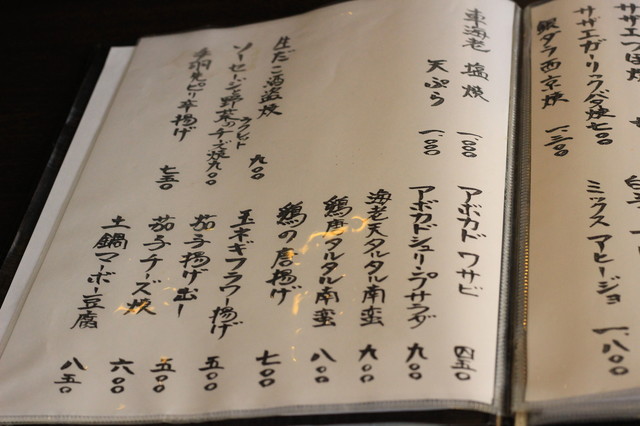 サザエつぼ焼
サザエガーリックバタ焼 七〇〇
銀ダラ西京焼 一、三〇〇
ミックスアヒージョ 一、八〇〇
車海老 塩焼 一、〇〇〇
天ぷら 一、〇〇〇
生だこ酒盗焼 九〇〇
ソーセージと野菜のラクレットチーズ焼 九〇〇
手羽先ピリ辛揚げ 七五〇
アボカドワサビ 四五〇
アボカドシュリンプサラダ 九〇〇
海老天タルタル南蛮 九〇〇
鶏唐タルタル南蛮 八〇〇
鶏の唐揚げ 七〇〇
玉ネギフラワー揚げ 五〇〇
茄子揚げ出し 五〇〇
茄子チーズ焼 六〇〇
土鍋マーボー豆腐 八五〇